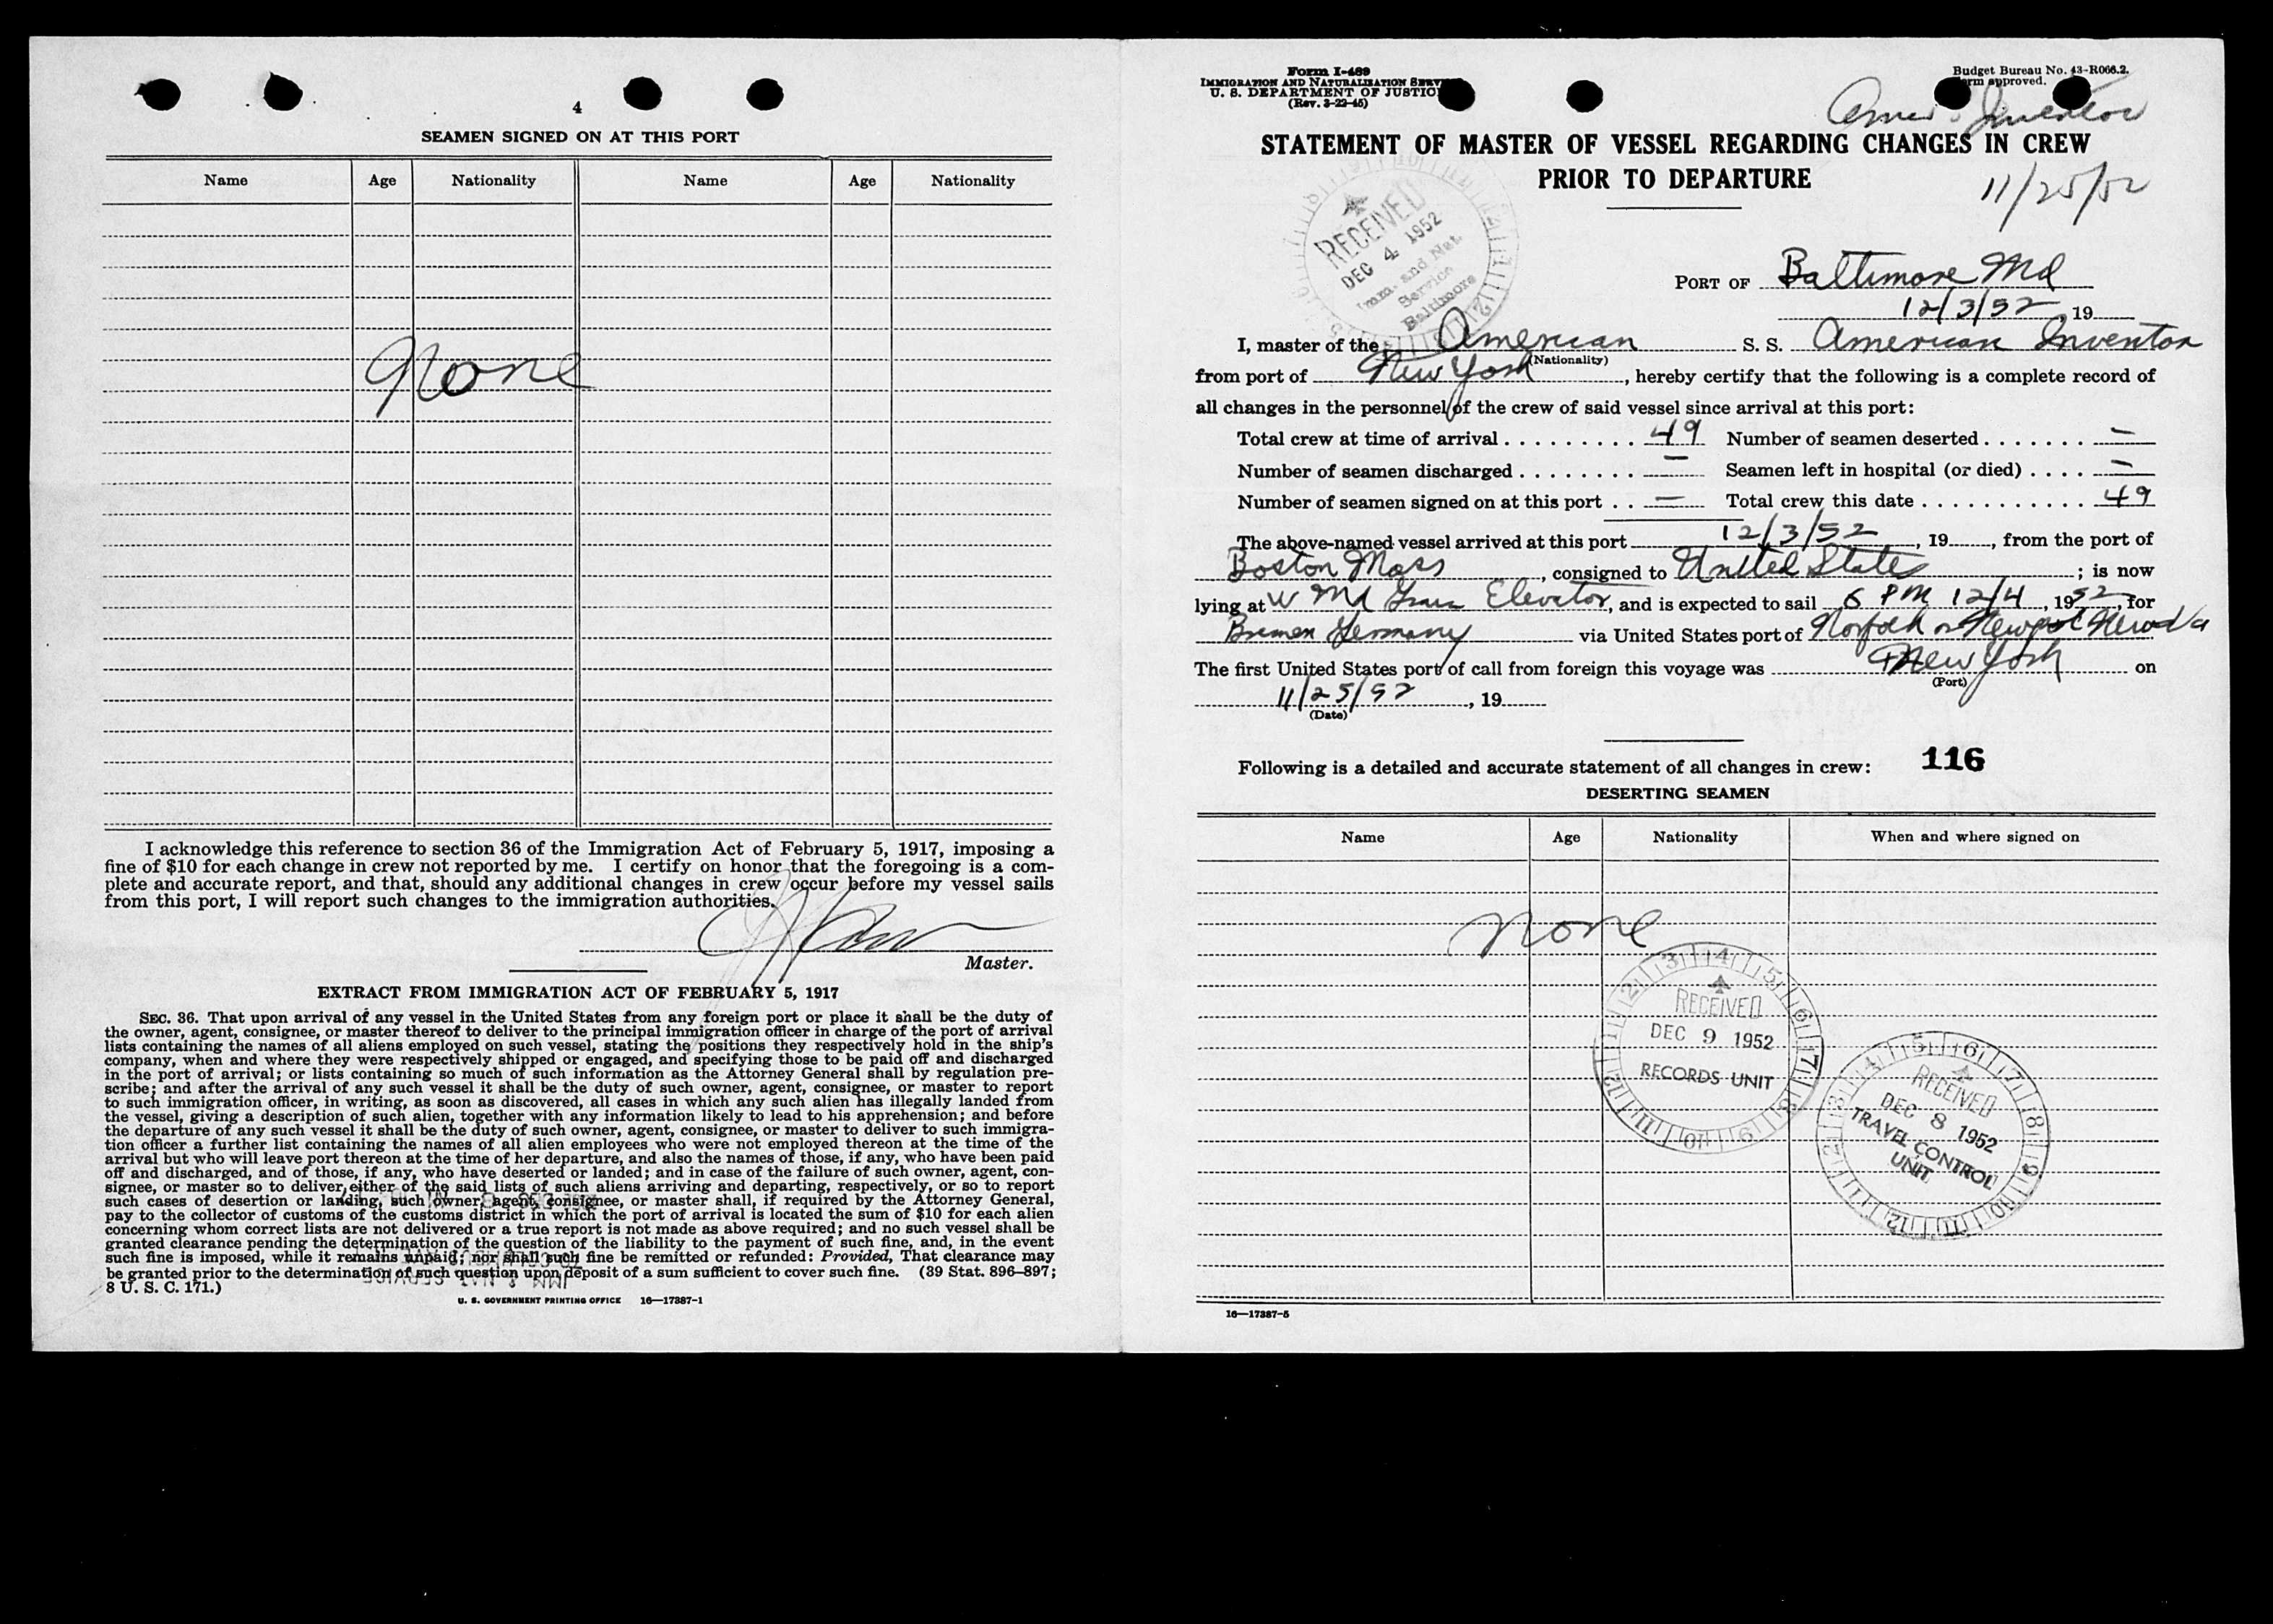 4
SEAMEN SIGNED ON AT THIS PORT
Name Age Nationality Name Age Nationality
None
I acknowledge this reference to section 36 of the Immigration Act of February 5, 1917, imposing a
fine of $10 for each change in crew not reported by me. I certify on honor that the foregoing is a com-
plete and accurate report, and that, should any additional changes in crew occur before my vessel sails
from this port, I will report such changes to the immigration authorities.
Master.
EXTRACT FROM IMMIGRATION ACT OF FEBRUARY 5, 1917
SEC. 36. That upon arrival of any vessel in the United States from any foreign port or place it shall be the duty of
the owner, agent, consignee, or master thereof to deliver to the principal immigration officer in charge of the port of arrival
lists containing the names of all aliens employed on such vessel, stating the positions they respectively hold in the ship's
company, when and where they were respectively shipped or engaged, and specifying those to be paid off and discharged
in the port of arrival; or lists containing so much of such information as the Attorney General shall by regulation pre-
scribe; and after the arrival of any such vessel it shall be the duty of such owner, agent, consignee, or master to report
to such immigration officer, in writing, as soon as discovered, all cases in which any such alien has illegally landed from
the vessel, giving a description of such alien, together with any information likely to lead to his apprehension; and before
the departure of any such vessel it shall be the duty of such owner, agent, consignee, or master to deliver to such immigra-
tion officer a further list containing the names of all alien employees who were not employed thereon at the time of the
arrival but who will leave port thereon at the time of her departure, and also the names of those, if any, who have been paid
off and discharged, and of those, if any, who have deserted or landed; and in case of the failure of such owner, agent, con-
signee, or master so to deliver either of the said lists of such aliens arriving and departing, respectively, or so to report
such cases of desertion or landing, such owner, agent, consignee, or master shall, if required by the Attorney General,
pay to the collector of customs of the customs district in which the port of arrival is located the sum of $10 for each alien
concerning whom correct lists are not delivered or a true report is not made as above required; and no such vessel shall be
granted clearance pending the determination of the question of the liability to the payment of such fine, and, in the event
such fine is imposed, while it remains unpaid; nor shall such fine be remitted or refunded: Provided, That clearance may
be granted prior to the determination of such question upon deposit of a sum sufficient to cover such fine. (39 Stat. 896–897;
8 U. S. C. 171.)
U. S. GOVERNMENT PRINTING OFFICE 16—17387-1
Form I-489
IMMIGRATION AND NATURALIZATION SERV
U. S. DEPARTMENT OF JUSTIC
(Rev. 3-22-45)
Budget Bureau No. 43-R066.2.
orm approved.
Amer Inventor
STATEMENT OF MASTER OF VESSEL REGARDING CHANGES IN CREW
PRIOR TO DEPARTURE
11/25/52
RECEIVED
DEC 4 1952
Imm. and Nat.
Service
Baltimore
PORT OF Baltimore Md
12/3/52, 19
I, master of the American S. S. American Inventor
(Nationality)
from port of New York, hereby certify that the following is a complete record of
all changes in the personnel of the crew of said vessel since arrival at this port:
Total crew at time of arrival . . . . . . . . . 49 Number of seamen deserted . . . . . . . —
Number of seamen discharged . . . . . . . . — Seamen left in hospital (or died) . . . . —
Number of seamen signed on at this port . . — Total crew this date . . . . . . . . . . . 49
The above-named vessel arrived at this port 12/3/52, 19, from the port of
Boston Mass, consigned to United States; is now
lying at W Md Grain Elevator, and is expected to sail 6 PM 12/4, 1952, for
Bremen Germany via United States port of Norfolk or Newport News Va
The first United States port of call from foreign this voyage was New York on
(Port)
11/25/52, 19
(Date)
Following is a detailed and accurate statement of all changes in crew: 116
DESERTING SEAMEN
Name Age Nationality When and where signed on
None
RECEIVED
DEC 9 1952
RECORDS UNIT
RECEIVED
DEC 8 1952
TRAVEL CONTROL
UNIT
16—17387-5